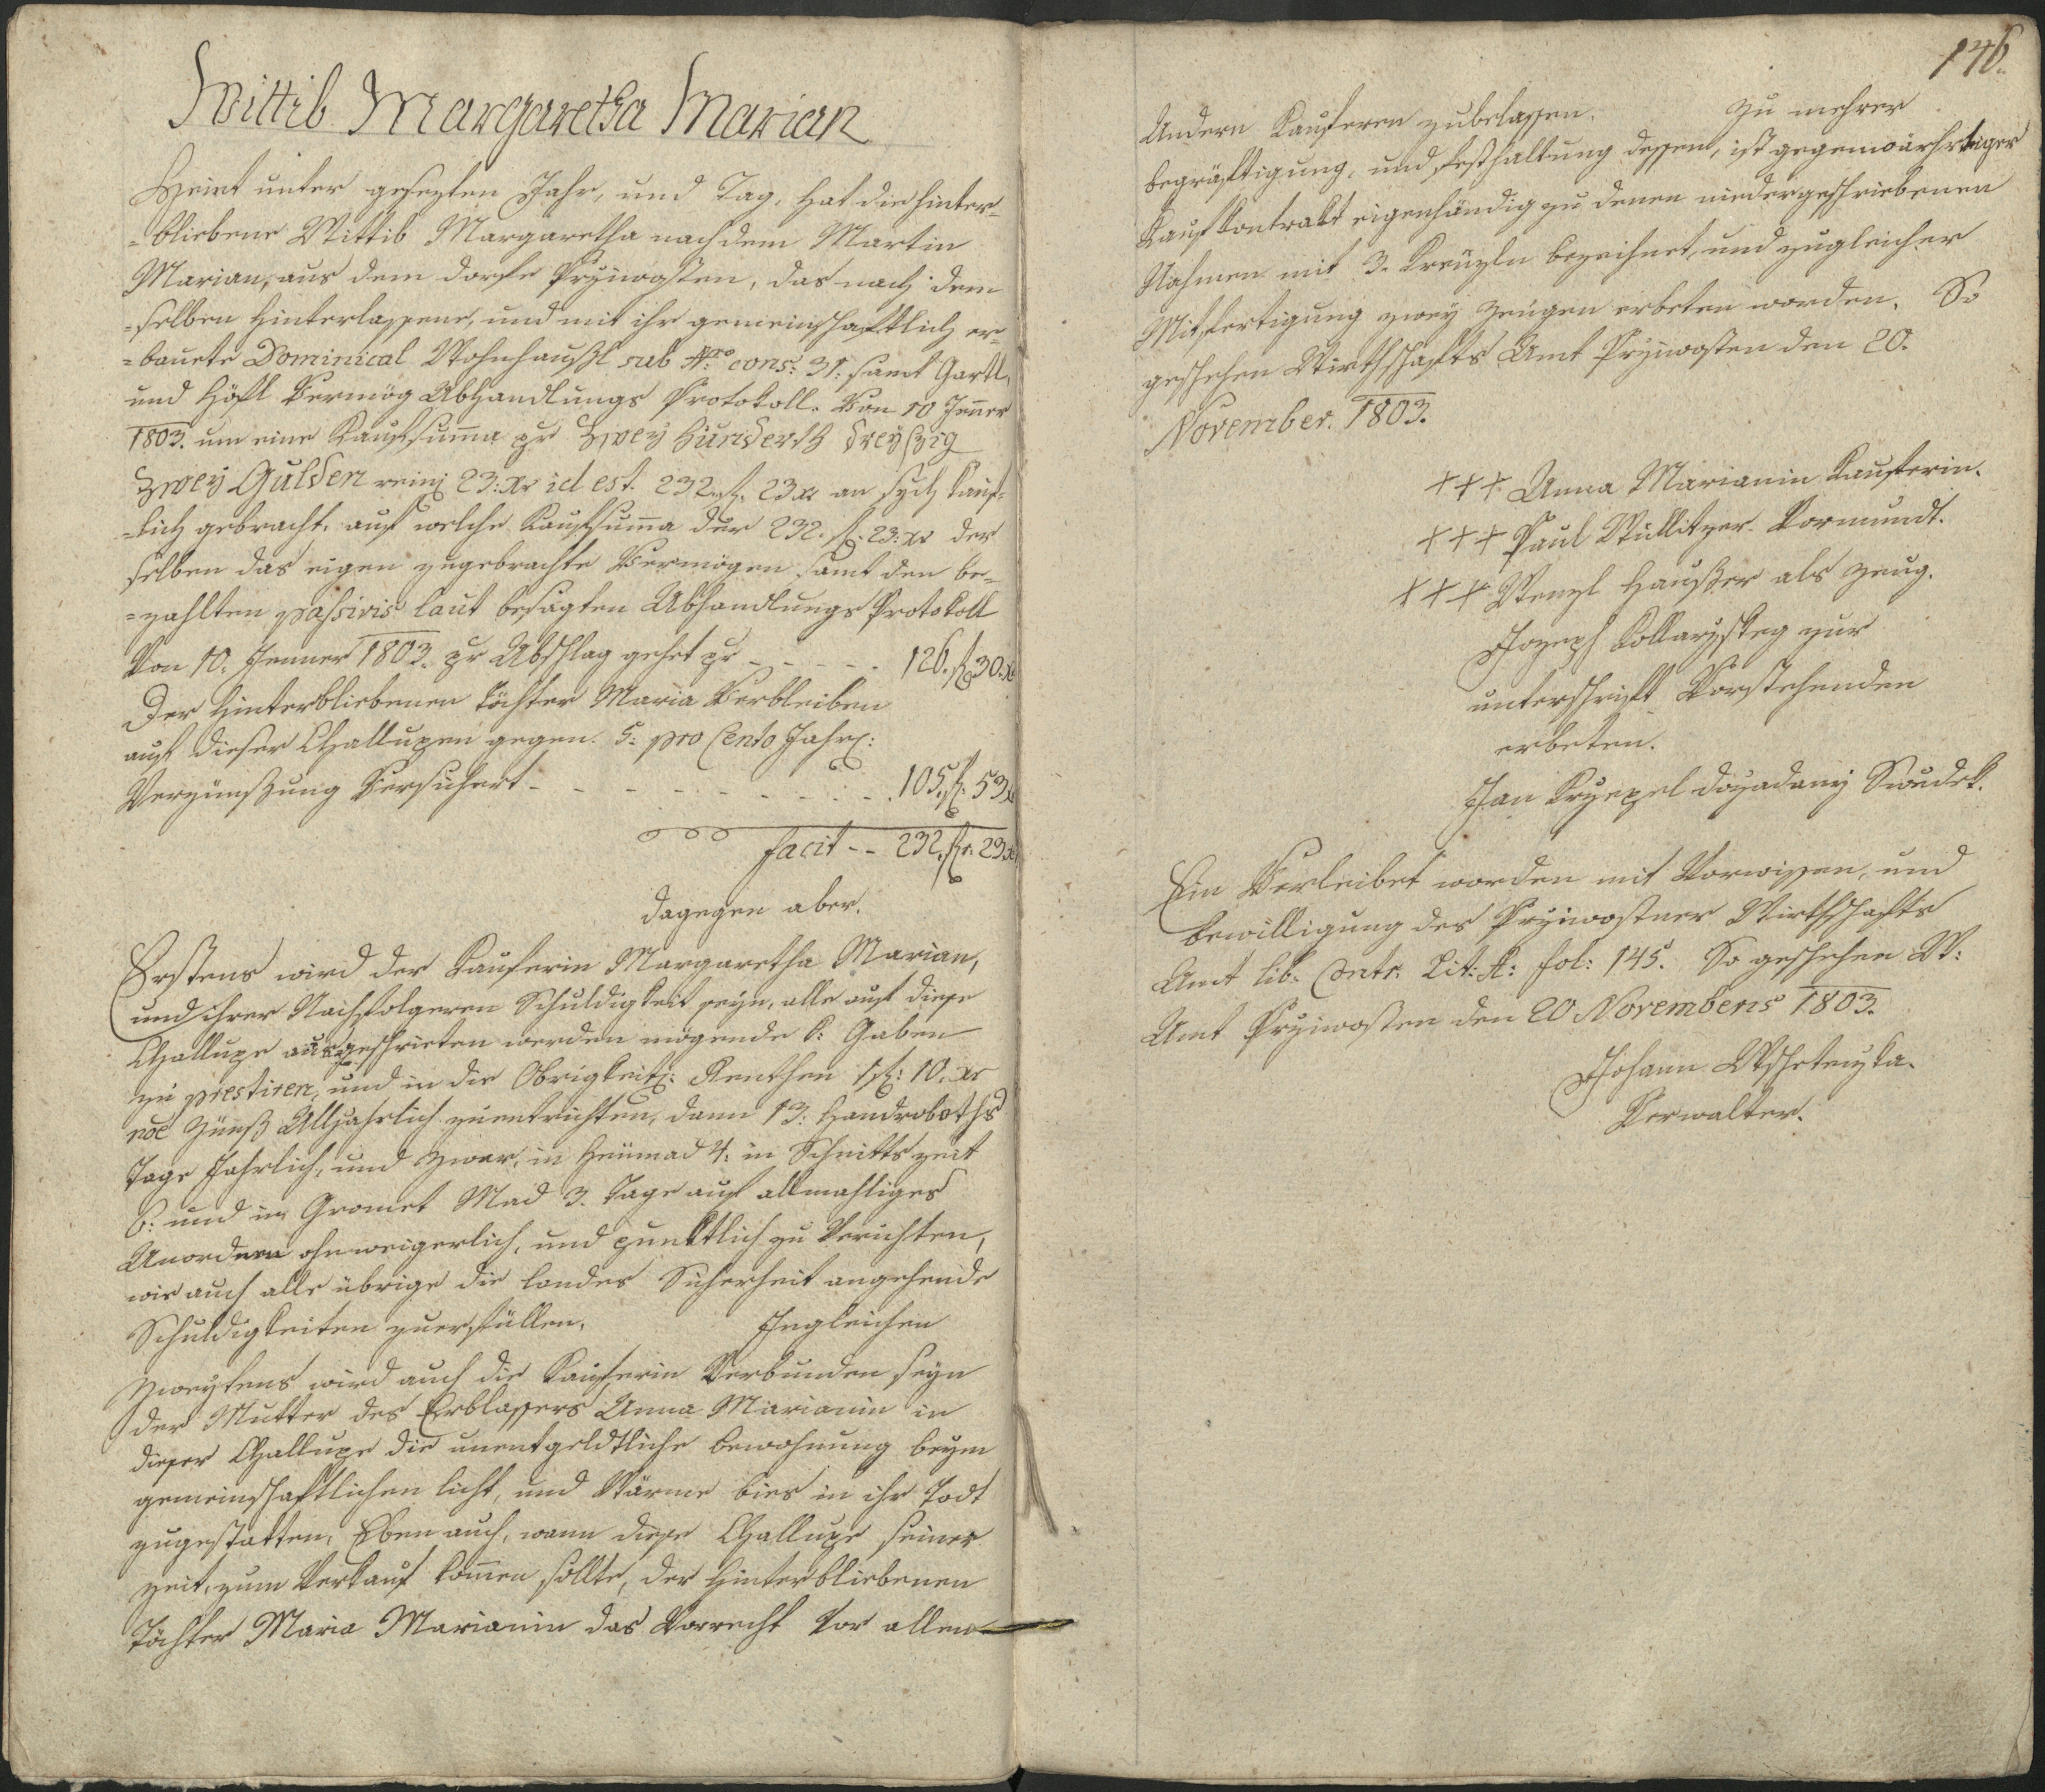 Wittib Margaretha Marian
Heint unter gesezten Jahr, und Tag, hat die hinter-
=bliebene Wittib Margaretha nach dem Martin
Marian, aus dem dorfe Przywosten, das nach dem
=selben hinterlassene, und mit ihr gemeinschaftlich er-
=bauete Dominical Wohnhaußl sub Nro cons: 31: samt Gartl,
und Höfl Vermög Abhandlungs Protokoll. Von 10 Jenner
1803. um eine Kaufsuma pr Zwey hunderth dreyßig
Zwey Gulden rein 23: xr id est. 232 fl. 23 xr an sych kauf-
=lich gebracht, auf welche Kaufsuma der 232. fl. 23: xr der
selben das eigen zugebrachte Vermögen samt den be-
=zahlten passivis laut besagten Abhandlungs Protokoll
Von 10. Jenner 1803. pr Abschlag gehet pr - - - - - 126. fl 30. x
Der hinterbliebenen töchter Maria Verbleiben
auf dieser Challupen gegen 5: pro Cento Jahrl:
Verzünßung Versichert - - - - - - - - - 105. fl. 53 x
facit - - 232. fl. 23 x
dagegen aber.
Erstens wird der Kauferin Margaretha Marian,
und ihrer Nachfolgeren Schuldigkeit seyn, alle auf diese
Challupe ausgeschrieten werden mögende k: Gaben
zu prestiren, und in die Obrigkeitl: Renthen 1 fl: 10. xr
noe Zünß Alljahrlich zuentrichten, dann 13: Handroboths
Tage Jahrlich, und zwar, in Heumad 4: in Schnitts zeit
6: und in Gromet Mad 3. Tage auf allmahliges
Anordnen ohnweigerlich, und punktlich zu Verichten,
wie auch alle übrige die landes Sicherheit angehende
Schuldigkeiten zuerfüllen. Ingleichen
Zweytens wird auch die Kauferin Verbunden seyn
der Mutter des Erblassers Anna Marianin in
dieser Challupe die unentgeldtliche bewohnung beym
gemeinschaftlichen licht, und Wärme bies in ihr Todt
zugestatten, Eben auch, wann diese Challupe seiner
zeit, zum Verkauf komen sollte, der hinterbliebenen
Töchter Maria Marianin das Vorrecht Vor allen
146.
Andern Kauferen zubelassen. Zu mehrer
begräftigung, und festhaltung dessen, ist gegenwärhrtiger
Kauf kontrakt eigenhändig zu denen niedergeschriebenen
Nahmen mit 3. Kreuzln bezeichnet, und zugleicher
Mitfertigung zwey Zeugen erbeten worden. So
geschehen Wirthschafts Amt Przywosten den 20.
November. 1803.
+++ Anna Marianin Kauferin.
+++ Paul Wullitzer Vormundt.
+++ Wenzl Haußer als Zeug.
Jozeph Kollarz steg zur
unterschrift Vorstehenden
erbeten.
Jan Krzepel dozadany Swedek.
Ein Verleibet worden mit Vorwissen, und
bewilligung des Przywostner Wirthschafts
Amt lib: Contr: Lit: A: fol: 145. So geschehen W:
Amt Przywosten den 20 Novembens 1803.
Johann Wschetenzka.
Verwalter.